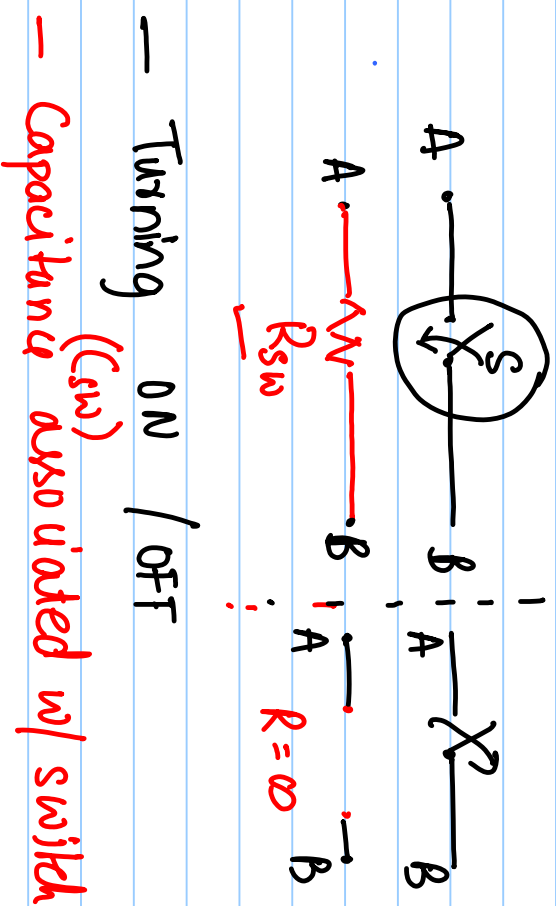 S
A B A B
A B A B
R_sw R = ∞
— Turning ON / OFF
(C_sw)
— Capacitance associated w/ switch